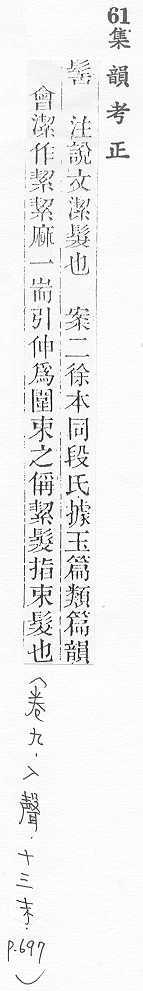 61集韻考正
髻 注說文潔髮也 案二徐本同段氏據玉篇類篇韻
會潔作絜絜麻一耑引伸爲圍束之偁絜髮指束髮也
(卷九.入聲.十三末.p.697)